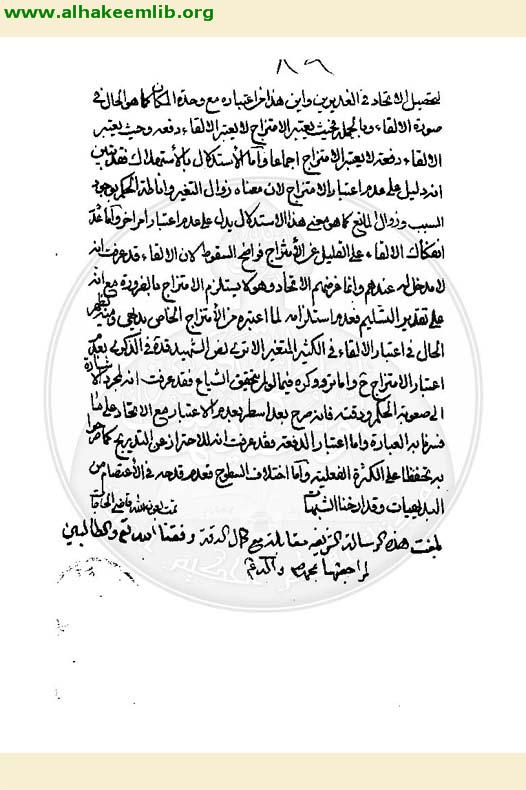 www.alhakeemlib.org
١٨٦
لتحصيل الاتحاد في الغديرين واين هذا من اعتباره مع وحدة المكان كما هو الحال في
صورة الالقاء وبالجملة فحيث يعتبر الامتزاج لا يعتبر الالقاء دفعة وحيث يعتبر
الالقاء دفعة لا يعتبر الامتزاج اجماعا واما الاستدلال بالاستهلاك فقد تبين
انه دليل على عدم اعتبار الامتزاج لان معناه زوال التغير واناطة الحكم بوجود
السبب وزوال المانع كما هو معنى هذا الاستدلال يدل على عدم اعتبار امر اخر واما
انفكاك الالقاء على القليل عن الامتزاج فواضح السقوط لان الالقاء قد عرفت انه
لا مدخل له عندهم وانما غرضهم الاتحاد وهو كما يستلزم الامتزاج بالضرورة مع انه
على تقدير التسليم فعدم استلزامه لما اعتبره من الامتزاج الخاص بديهي ومنه يظهر
الحال في اعتبار الالقاء في الكثير المتغير الا ترى نص الشهيد قده في الذكرى بعدم
اعتبار الامتزاج ح واما تردده فيما لم يتحقق الشياع فقد عرفت انه لمجرد الاشارة
الى صعوبة الحكم ودقته فانه صرح بعد اسطر بعدم الاعتبار مع الاتحاد على ما
فسرنا به العبارة واما اعتبار الدفعة فقد عرفت انه للاحتراز عن التدريج كما صرحوا
به تحفظا على الكثرة الفعلية واما اختلاف السطوح فعدم قدحه في الاعتصام من
البديهيات وقد ازحنا الشبهات تمت بعون الله قاضي الحاجات
بلغت هذه الرسالة الشريفة مقابلة مع كمال الدقة وفقنا الله تع والطالبين
لمراجعتها بمحمد ص وآله